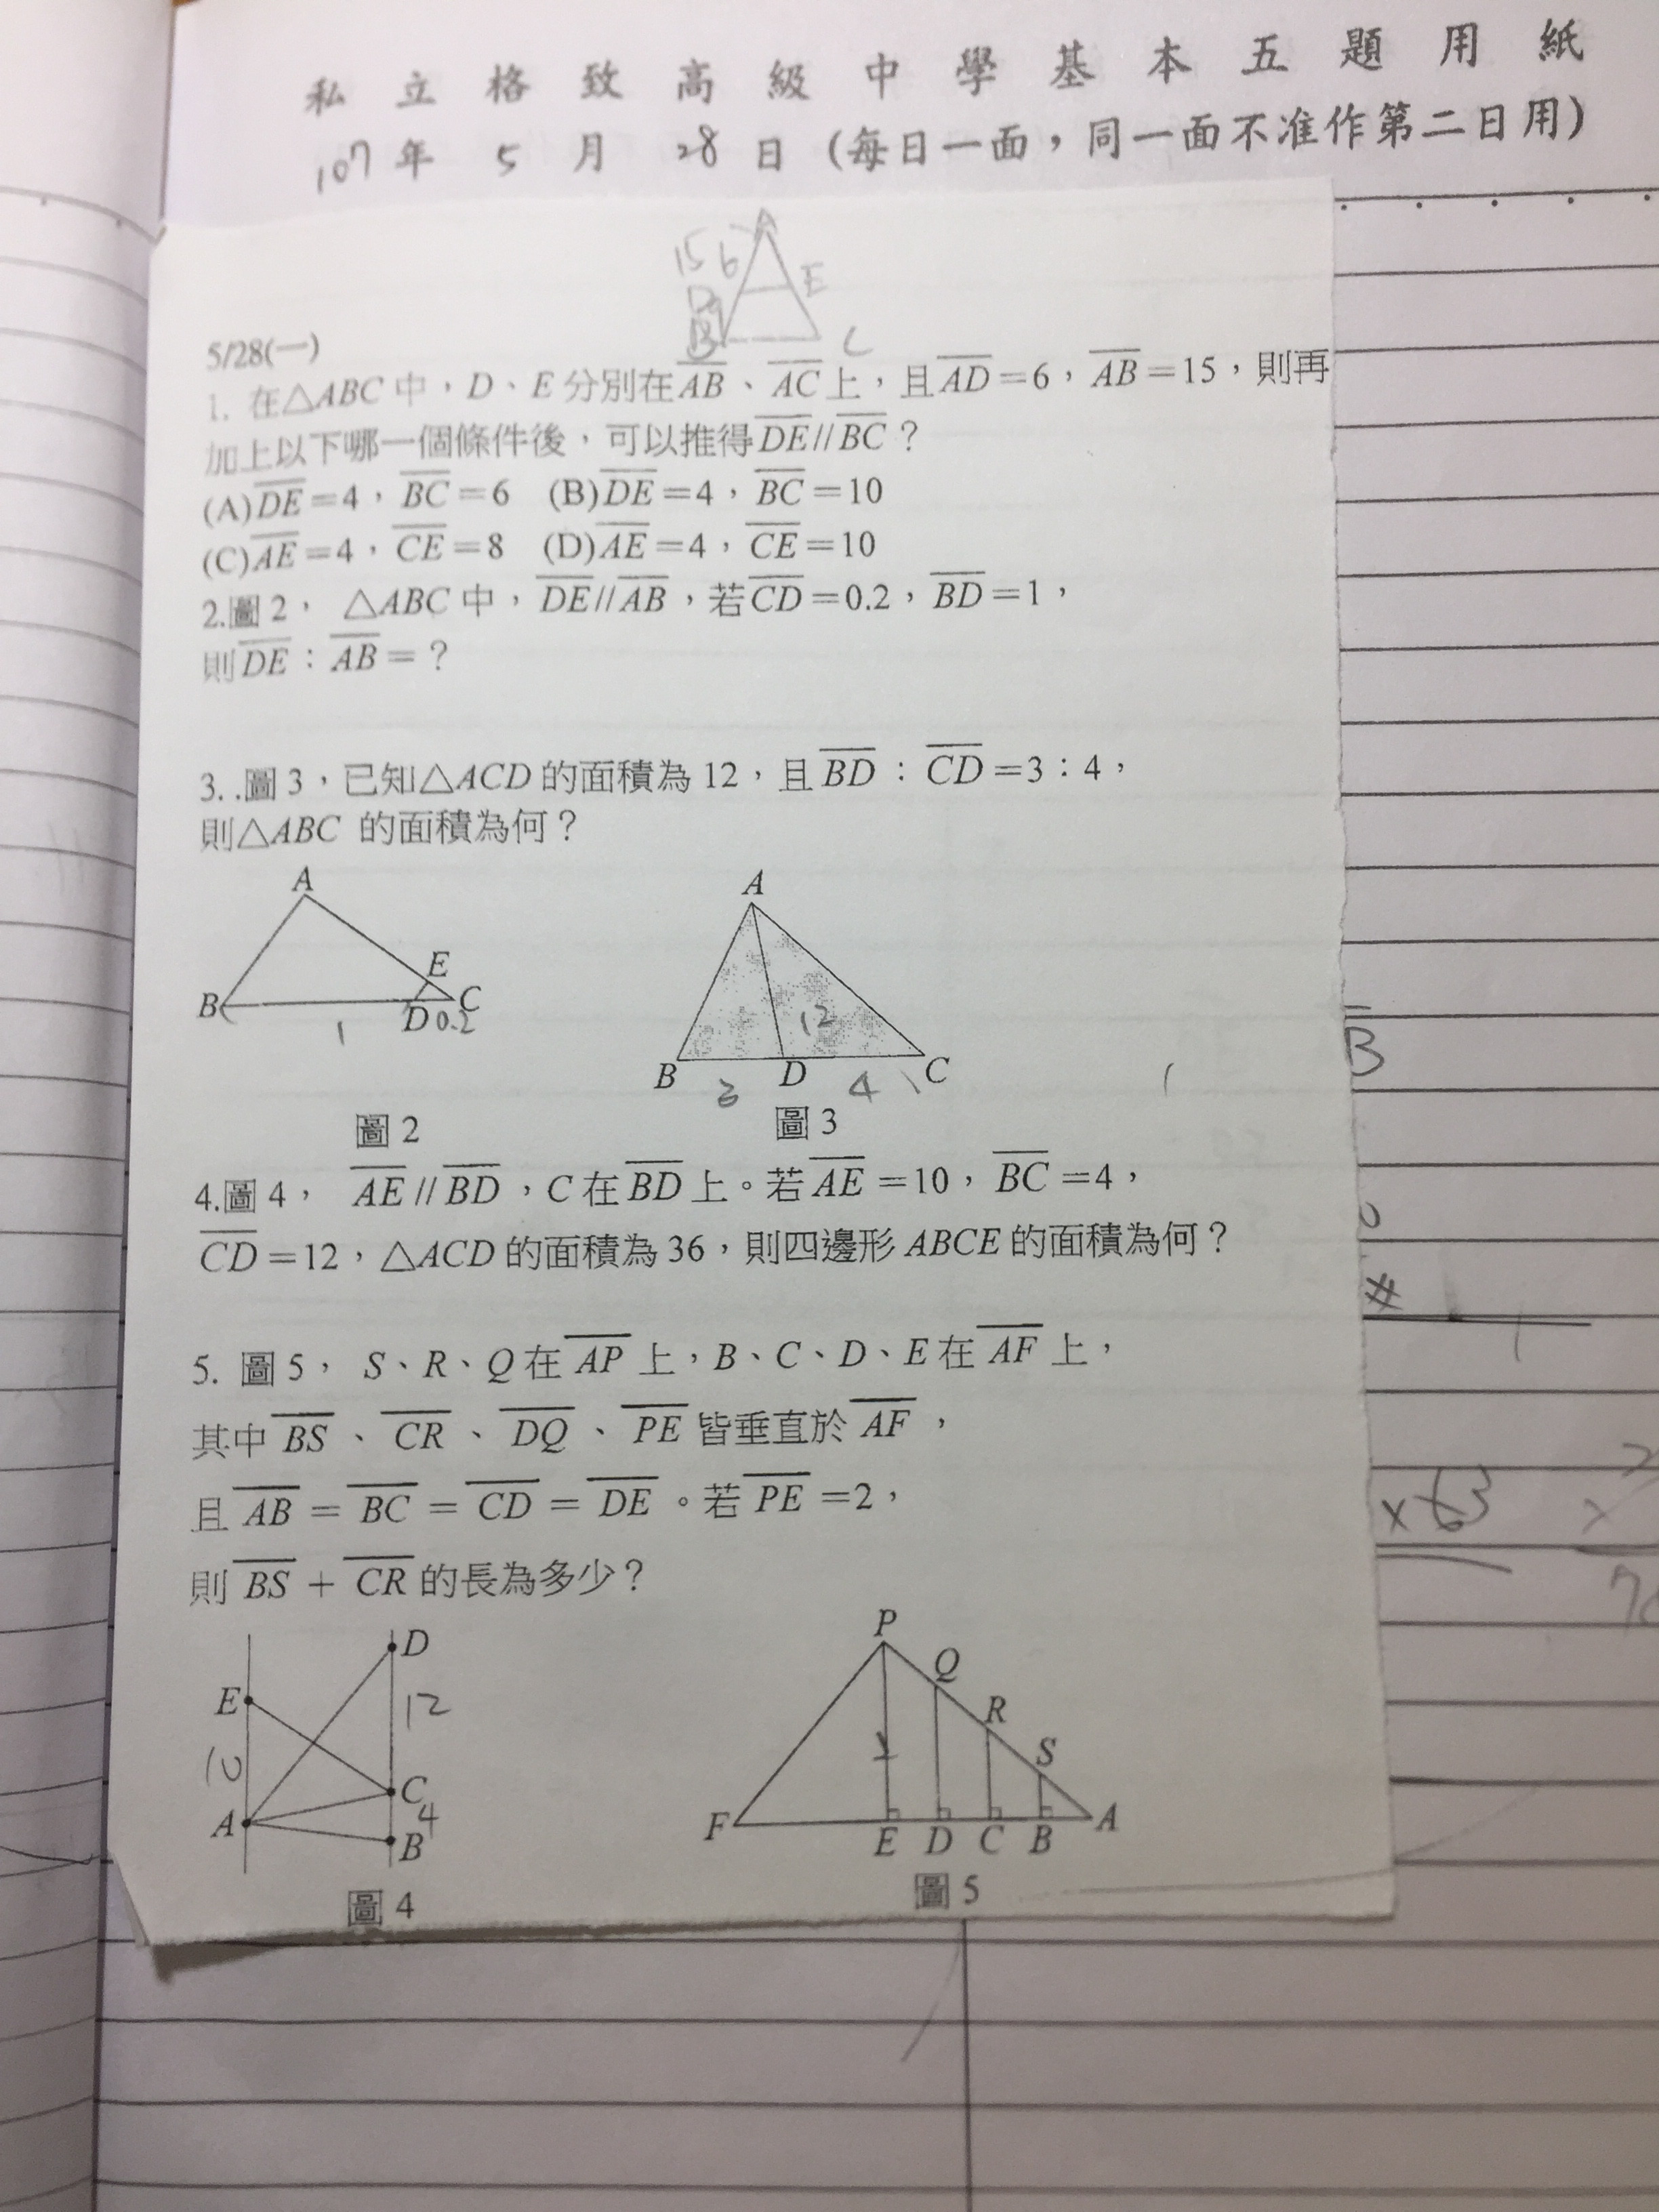 私立格致高級中學基本五題用紙
107年 5 月 28 日 (每日一面，同一面不准作第二日用)
A
15 6
D E
9
B C
5/28(一)
1. 在△ABC 中，D、E 分別在AB、AC上，且AD=6，AB=15，則再
加上以下哪一個條件後，可以推得DE//BC？
(A)DE=4，BC=6 (B)DE=4，BC=10
(C)AE=4，CE=8 (D)AE=4，CE=10
2.圖 2， △ABC 中，DE//AB，若CD=0.2，BD=1，
則DE：AB=？
3. .圖 3，已知△ACD 的面積為 12，且BD：CD=3：4，
則△ABC 的面積為何？
A
E
B D C
1 0.2
圖 2
A
12
B D C
3 4
圖 3
4.圖 4， AE // BD，C 在BD上。若AE=10，BC=4，
CD=12，△ACD 的面積為 36，則四邊形 ABCE 的面積為何？
5. 圖 5， S、R、Q 在 AP 上，B、C、D、E 在 AF 上，
其中 BS 、 CR 、 DQ 、 PE 皆垂直於 AF ，
且 AB = BC = CD = DE 。若 PE =2，
則 BS + CR 的長為多少？
D
E 12
10
C
A 4
B
圖 4
P
Q
R
S
F E D C B A
圖 5
B
#
×63